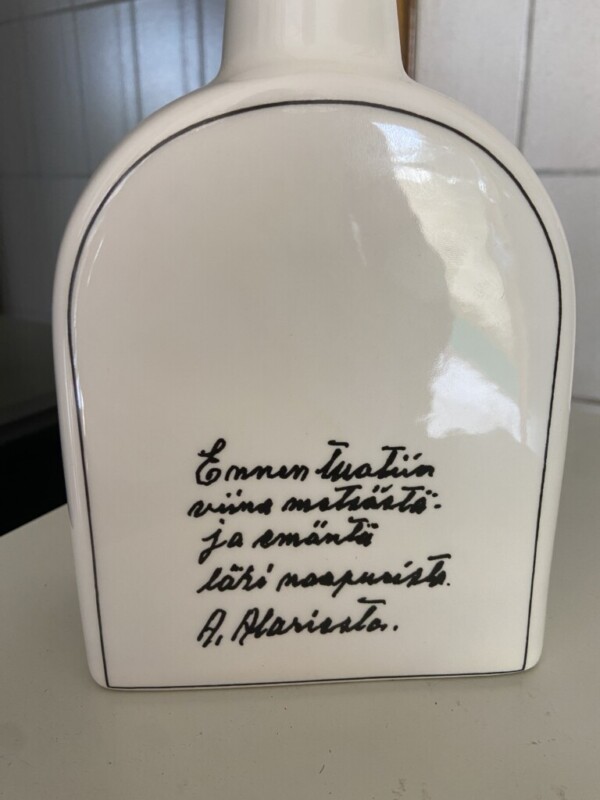 Ennen tuatiin
viina metsästä-
ja emäntä
läki naapurista.
A. Alariesto.